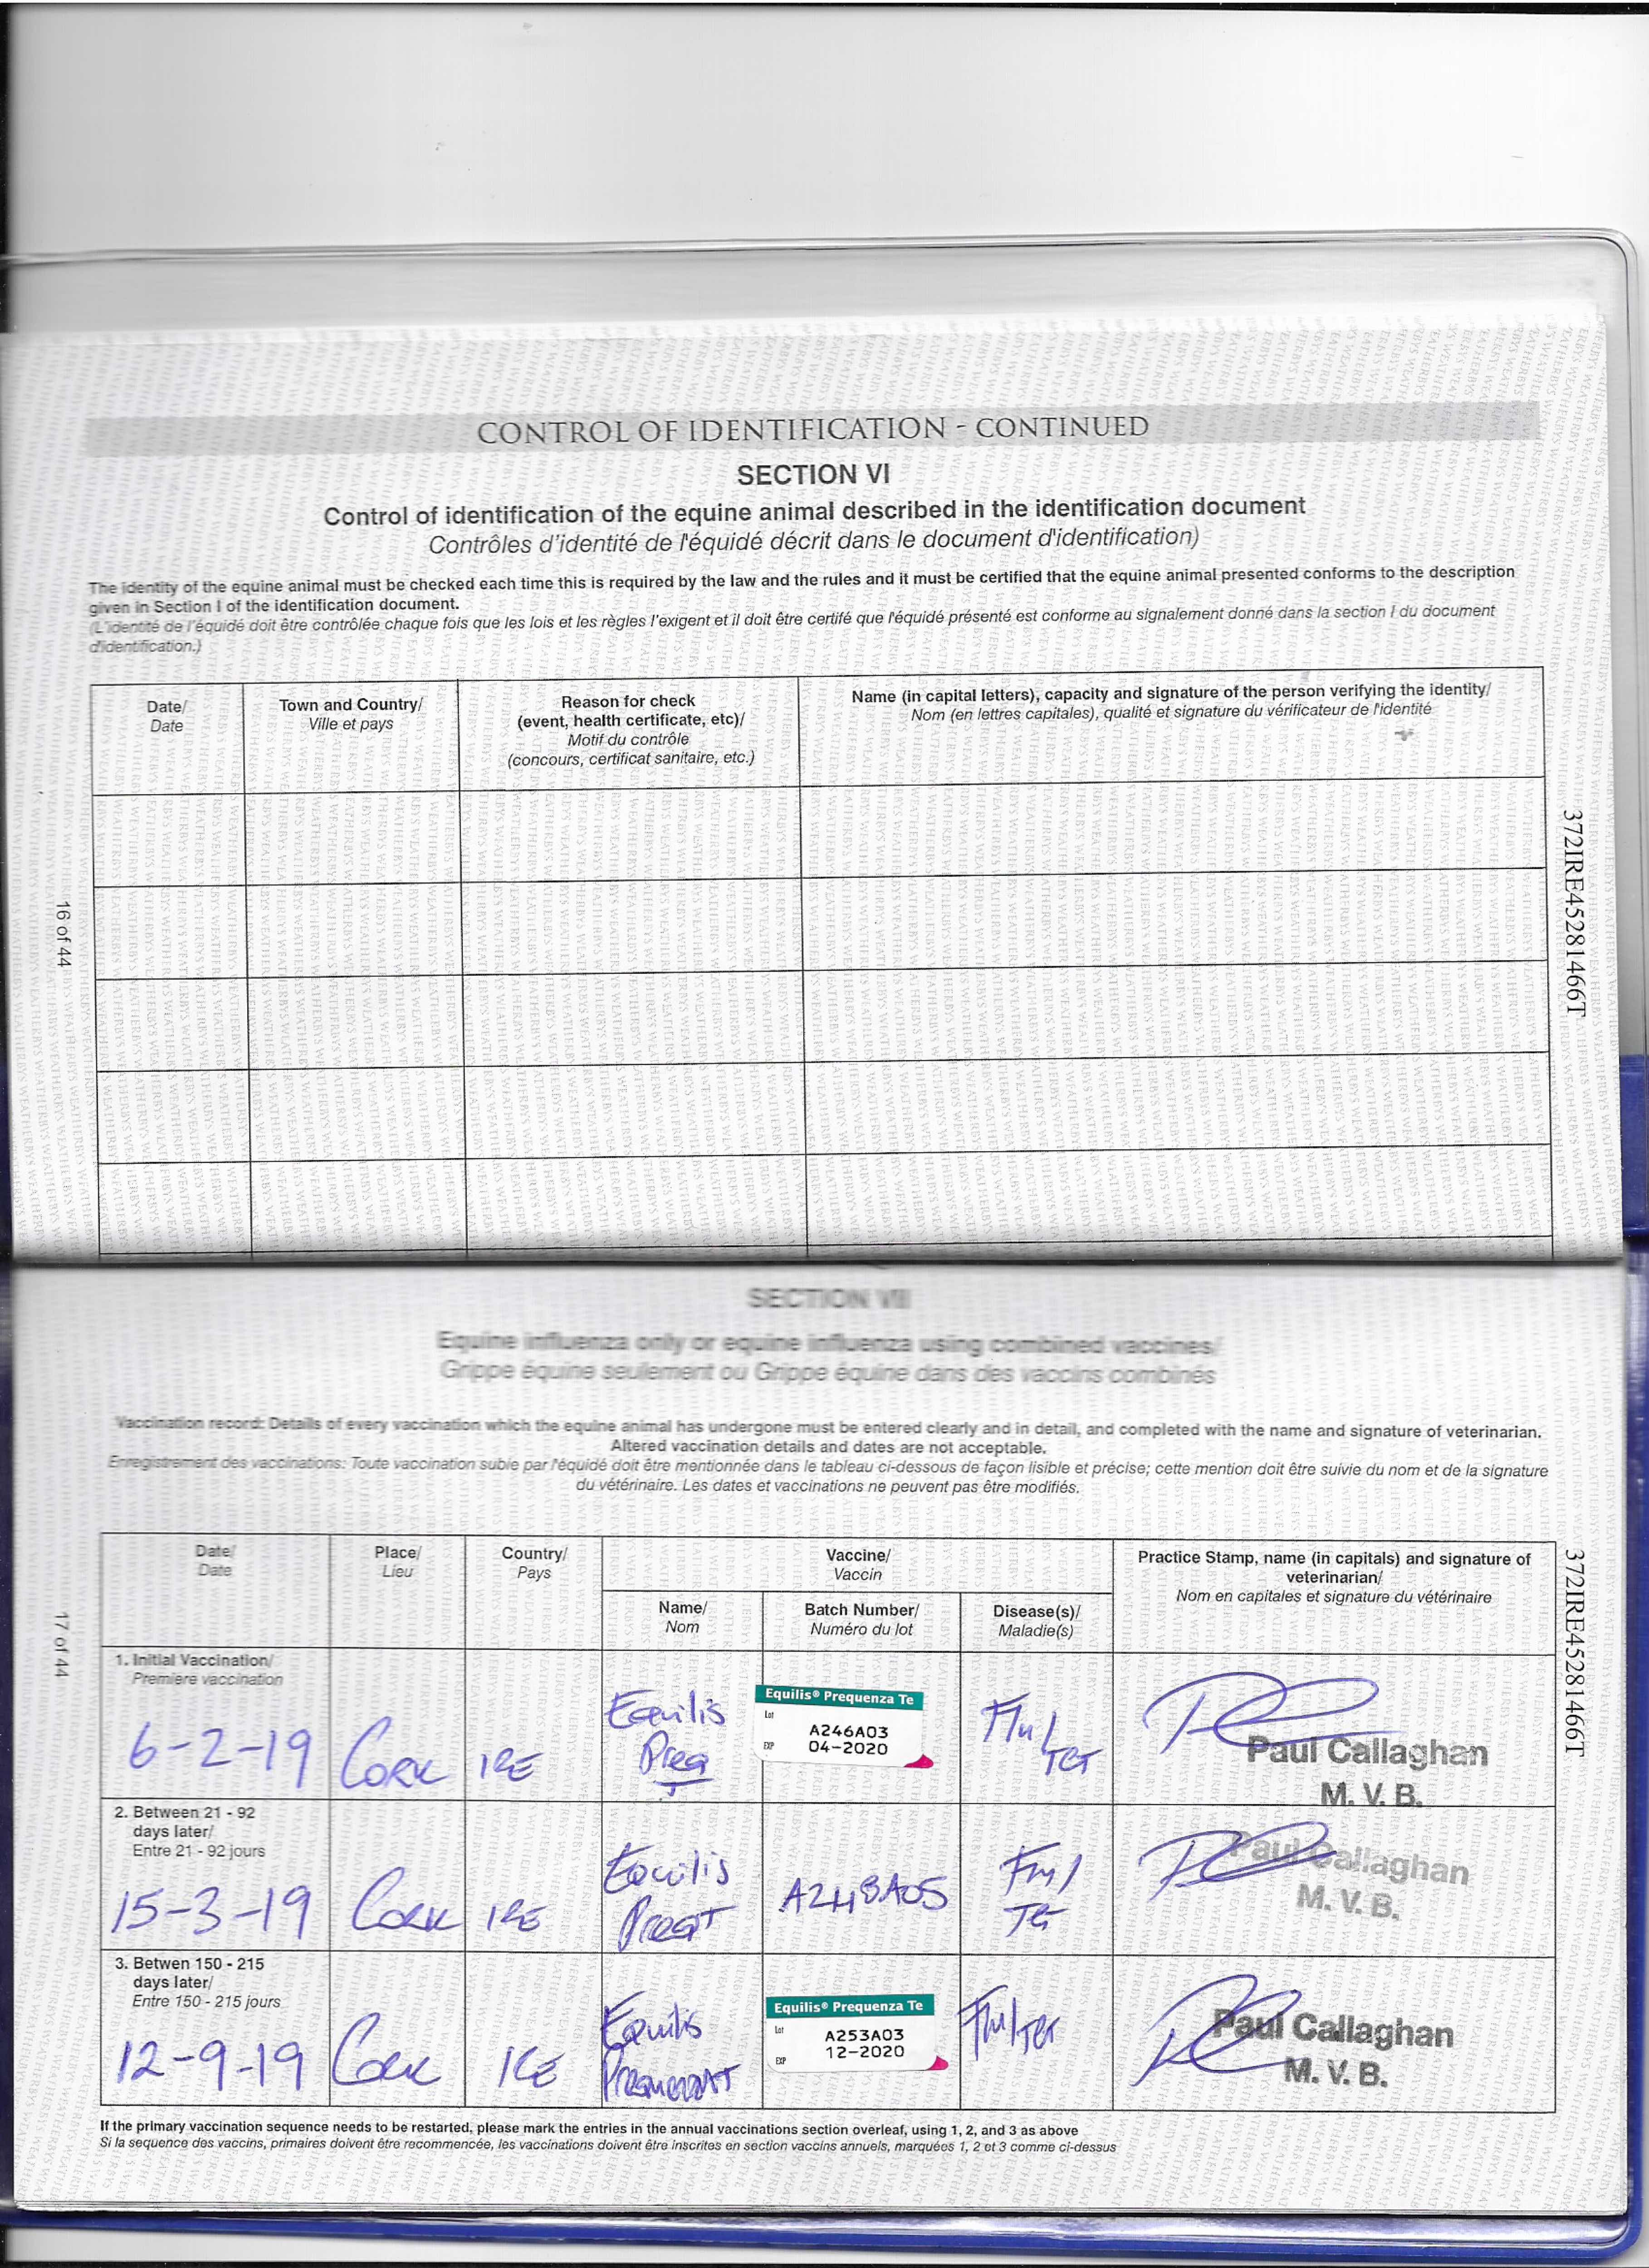 CONTROL OF IDENTIFICATION - CONTINUED
SECTION VI
Control of identification of the equine animal described in the identification document
Contrôles d'identité de l'équidé décrit dans le document d'identification)
The identity of the equine animal must be checked each time this is required by the law and the rules and it must be certified that the equine animal presented conforms to the description
given in Section I of the identification document.
(L'identité de l'équidé doit être contrôlée chaque fois que les lois et les règles l'exigent et il doit être certifé que l'équidé présenté est conforme au signalement donné dans la section I du document
d'identification.)
Date/
Date
Town and Country/
Ville et pays
Reason for check
(event, health certificate, etc)/
Motif du contrôle
(concours, certificat sanitaire, etc.)
Name (in capital letters), capacity and signature of the person verifying the identity/
Nom (en lettres capitales), qualité et signature du vérificateur de l'identité
16 of 44
372IRE45281466T
SECTION VII
Equine influenza only or equine influenza using combined vaccines/
Grippe équine seulement ou Grippe équine dans des vaccins combinés
Vaccination record: Details of every vaccination which the equine animal has undergone must be entered clearly and in detail, and completed with the name and signature of veterinarian.
Altered vaccination details and dates are not acceptable.
Enregistrement des vaccinations: Toute vaccination subie par l'équidé doit être mentionnée dans le tableau ci-dessous de façon lisible et précise; cette mention doit être suivie du nom et de la signature
du vétérinaire. Les dates et vaccinations ne peuvent pas être modifiés.
Date/
Date
Place/
Lieu
Country/
Pays
Vaccine/
Vaccin
Name/
Nom
Batch Number/
Numéro du lot
Disease(s)/
Maladie(s)
Practice Stamp, name (in capitals) and signature of
veterinarian/
Nom en capitales et signature du vétérinaire
17 of 44
372IRE45281466T
1. Initial Vaccination/
Premiere vaccination
6-2-19 Cork IRE
Equilis
Preq
T
Equilis® Prequenza Te
Lot A246A03
EXP 04-2020
Flu/
Tet
Paul Callaghan
M. V. B.
2. Between 21 - 92
days later/
Entre 21 - 92 jours
15-3-19 Cork IRE
Equilis
PreqT
A248A05
Flu/
Tet
Paul Callaghan
M. V. B.
3. Betwen 150 - 215
days later/
Entre 150 - 215 jours
12-9-19 Cork IRE
Equilis
Equilis® Prequenza Te
Lot A253A03
EXP 12-2020
Flu/Tet
Paul Callaghan
M. V. B.
If the primary vaccination sequence needs to be restarted, please mark the entries in the annual vaccinations section overleaf, using 1, 2, and 3 as above
Si la sequence des vaccins, primaires doivent être recommencée, les vaccinations doivent être inscrites en section vaccins annuels, marquées 1, 2 et 3 comme ci-dessus